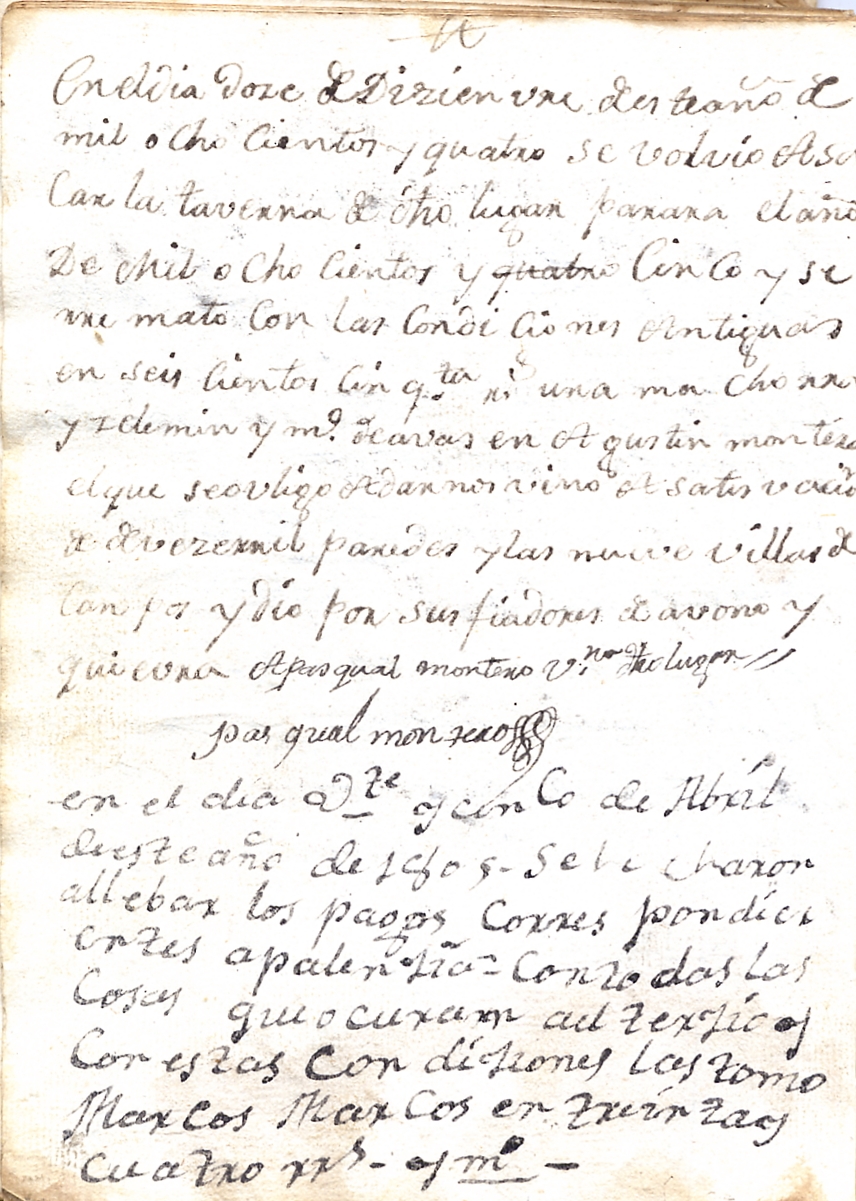 En el dia doze de Dizienvre deste año de
mil ocho cientos y quatro se volvio A sa
Car la taverna de dho lugar parara el año
De Mil ocho cientos y quatro Cinco y se
rre mato Con las Condi Ciones Antiguas
en seis cientos cinq.ta rs una ma chorra
y zelemin y m.o de avas en Agustin montero
el que se ovligo A darnos vino A satisvacio
de de vezerril paredes y las nueve villas de
Campos y dio por sus fiadores de avono y
quievra A pasqual montero v.no dho lugar
pasqual montero
en el dia V.te y cinCo de Abril
deeste año de 1805 - Sele charon
allebar los pagos Corres pondici
entes apalenzia - Contodas las
Cosas que ocuraxn al terzio y
Con estas Con diziones las tomo
Marcos Marcos en treinta y
cuatro rrs - y m.o -